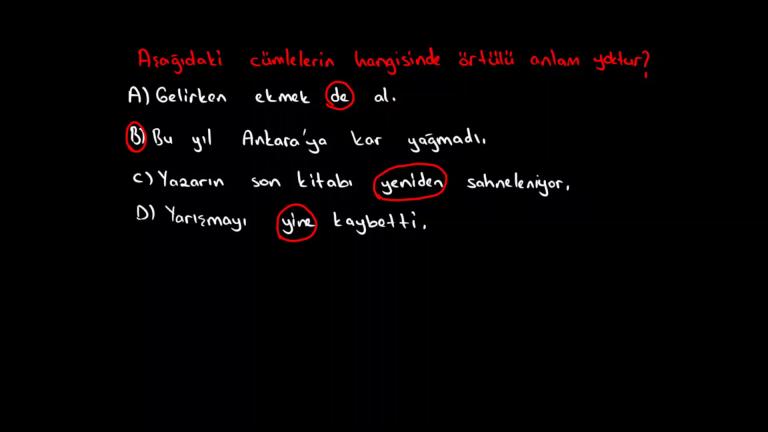 Aşağıdaki cümlelerin hangisinde örtülü anlam yoktur?
A) Gelirken ekmek de al.
B) Bu yıl Ankara'ya kar yağmadı.
C) Yazarın son kitabı yeniden sahneleniyor.
D) Yarışmayı yine kaybetti.